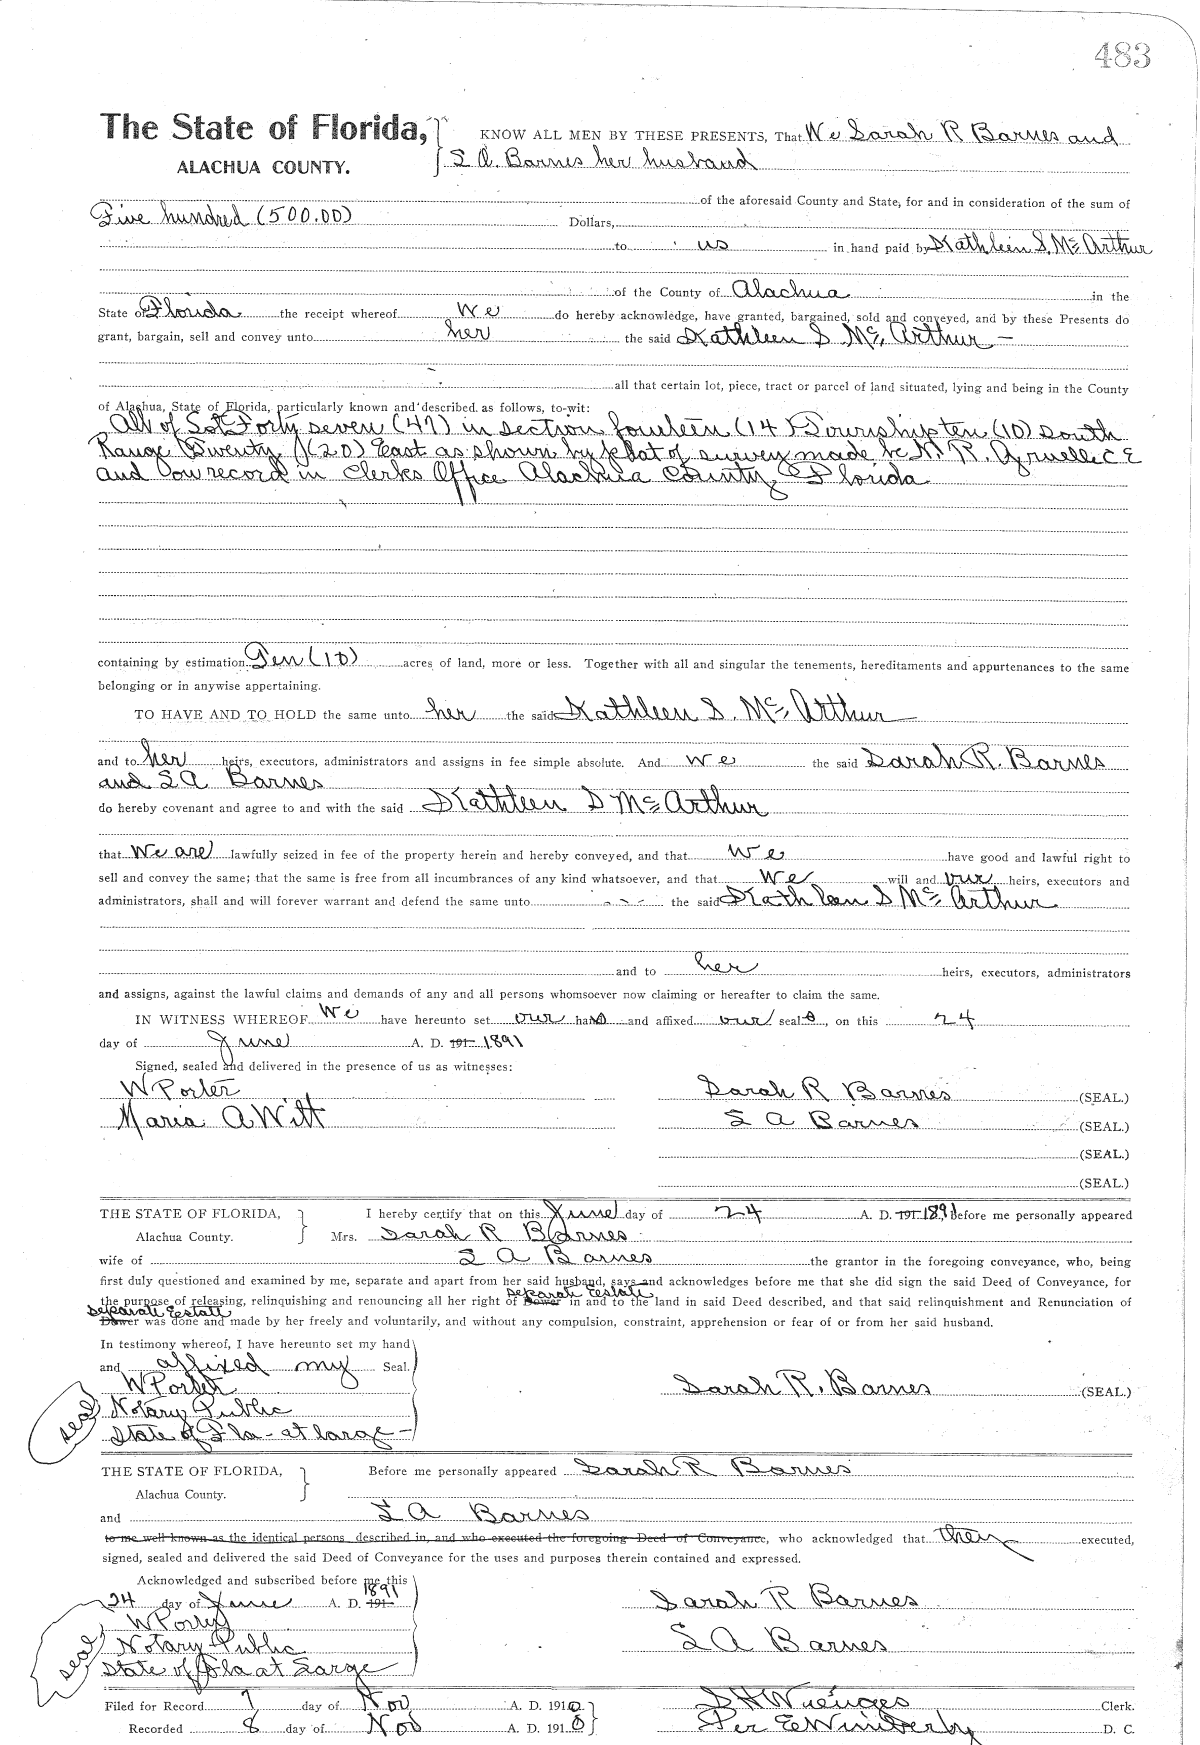 483
The State of Florida, KNOW ALL MEN BY THESE PRESENTS, That We Sarah R Barnes and
ALACHUA COUNTY. S A. Barnes her husband
of the aforesaid County and State, for and in consideration of the sum of
Five hundred (500.00) Dollars,
to us in hand paid by Kathleen S. Mc Arthur
of the County of Alachua in the
State of Florida the receipt whereof We do hereby acknowledge, have granted, bargained, sold and conveyed, and by these Presents do
grant, bargain, sell and convey unto her the said Kathleen S Mc Arthur
all that certain lot, piece, tract or parcel of land situated, lying and being in the County
of Alachua, State of Florida, particularly known and described as follows, to-wit:
All of Lot Forty seven (47) in section fourteen (14) Township ten (10) South
Range Twenty (20) East as shown by plat of survey made by N. R. C E
and on record in Clerks Office Alachua County, Florida
containing by estimation Ten (10) acres of land, more or less. Together with all and singular the tenements, hereditaments and appurtenances to the same
belonging or in anywise appertaining.
TO HAVE AND TO HOLD the same unto her the said Kathleen S. Mc Arthur
and to her heirs, executors, administrators and assigns in fee simple absolute. And We the said Sarah R. Barnes
and S A Barnes
do hereby covenant and agree to and with the said Kathleen S Mc Arthur
that We are lawfully seized in fee of the property herein and hereby conveyed, and that We have good and lawful right to
sell and convey the same; that the same is free from all incumbrances of any kind whatsoever, and that We will and our heirs, executors and
administrators, shall and will forever warrant and defend the same unto the said Kathleen S Mc Arthur
and to her heirs, executors, administrators
and assigns, against the lawful claims and demands of any and all persons whomsoever now claiming or hereafter to claim the same.
IN WITNESS WHEREOF We have hereunto set our hands and affixed our seals, on this 24
day of June A. D. 191 1891
Signed, sealed and delivered in the presence of us as witnesses:
W Porter Sarah R Barnes (SEAL.)
Maria A Witt S A Barnes (SEAL.)
(SEAL.)
(SEAL.)
THE STATE OF FLORIDA, I hereby certify that on this June day of 24 A. D. 191 1891 Before me personally appeared
Alachua County. Mrs. Sarah R Barnes
wife of S A Barnes the grantor in the foregoing conveyance, who, being
first duly questioned and examined by me, separate and apart from her said husband, says and acknowledges before me that she did sign the said Deed of Conveyance, for
the purpose of releasing, relinquishing and renouncing all her right of Dower separate Estate in and to the land in said Deed described, and that said relinquishment and Renunciation of
separate Estate Dower was done and made by her freely and voluntarily, and without any compulsion, constraint, apprehension or fear of or from her said husband.
In testimony whereof, I have hereunto set my hand
and affixed my Seal.
W Porter Sarah R. Barnes (SEAL.)
seal Notary Public
State of Fla - at large -
THE STATE OF FLORIDA, Before me personally appeared Sarah R Barnes
Alachua County.
and S A Barnes
to me well known as the identical persons described in, and who executed the foregoing Deed of Conveyance, who acknowledged that they executed,
signed, sealed and delivered the said Deed of Conveyance for the uses and purposes therein contained and expressed.
Acknowledged and subscribed before me this
24 day of June A. D. 191 1891 Sarah R Barnes
W Porter
seal Notary Public S A Barnes
State of Fla at Large
Filed for Record 7 day of Nov A. D. 1910 S H Wienges Clerk.
Recorded 8 day of Nov A. D. 1910 Per E Wimberly D. C.